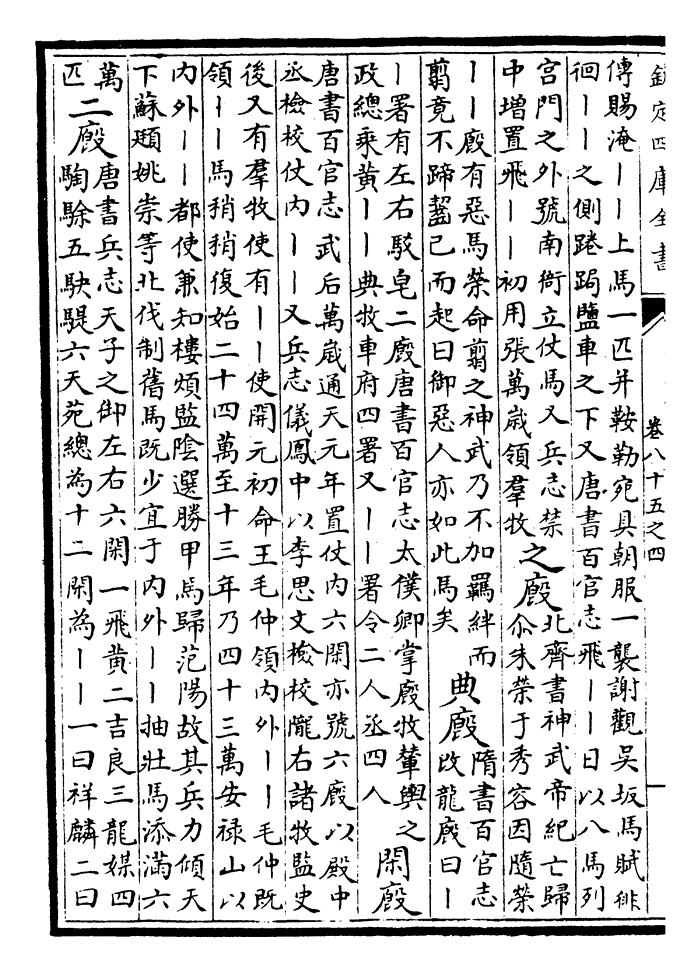 欽定四庫全書
卷八十五之四
傳賜淹丨丨上馬一匹并鞍勒宛具朝服一襲謝觀吳坂馬賦徘
徊丨丨之側踡跼鹽車之下又唐書百官志飛丨丨日以八馬列
宮門之外號南衙立仗馬又兵志禁
中增置飛丨丨初用張萬歲領羣牧
之廏
北齊書神武帝紀亡歸
尒朱榮于秀容因隨榮
丨丨廏有惡馬榮命翦之神武乃不加羈絆而
翦竟不蹄齧已而起曰御惡人亦如此馬矣
典廏
隋書百官志
改龍廏曰丨
丨署有左右駮皂二廏唐書百官志太僕卿掌廏牧輦輿之
政總乘黄丨丨典牧車府四署又丨丨署令二人丞四人
閑廏
唐書百官志武后萬歲通天元年置仗内六閑亦號六廏以殿中
丞檢校仗内丨丨又兵志儀鳳中以李思文檢校隴右諸牧監史
後又有羣牧使有丨丨使開元初命王毛仲領内外丨丨毛仲既
領丨丨馬稍稍復始二十四萬至十三年乃四十三萬安禄山以
内外丨丨都使兼知樓煩監陰選勝甲馬歸范陽故其兵力傾天
下蘇頲姚崇等北伐制舊馬既少宜于内外丨丨抽壯馬添滿六
萬
匹
二廏
唐書兵志天子之御左右六閑一飛黄二吉良三龍媒四
騊駼五駃騠六天苑總為十二閑為丨丨一曰祥麟二曰